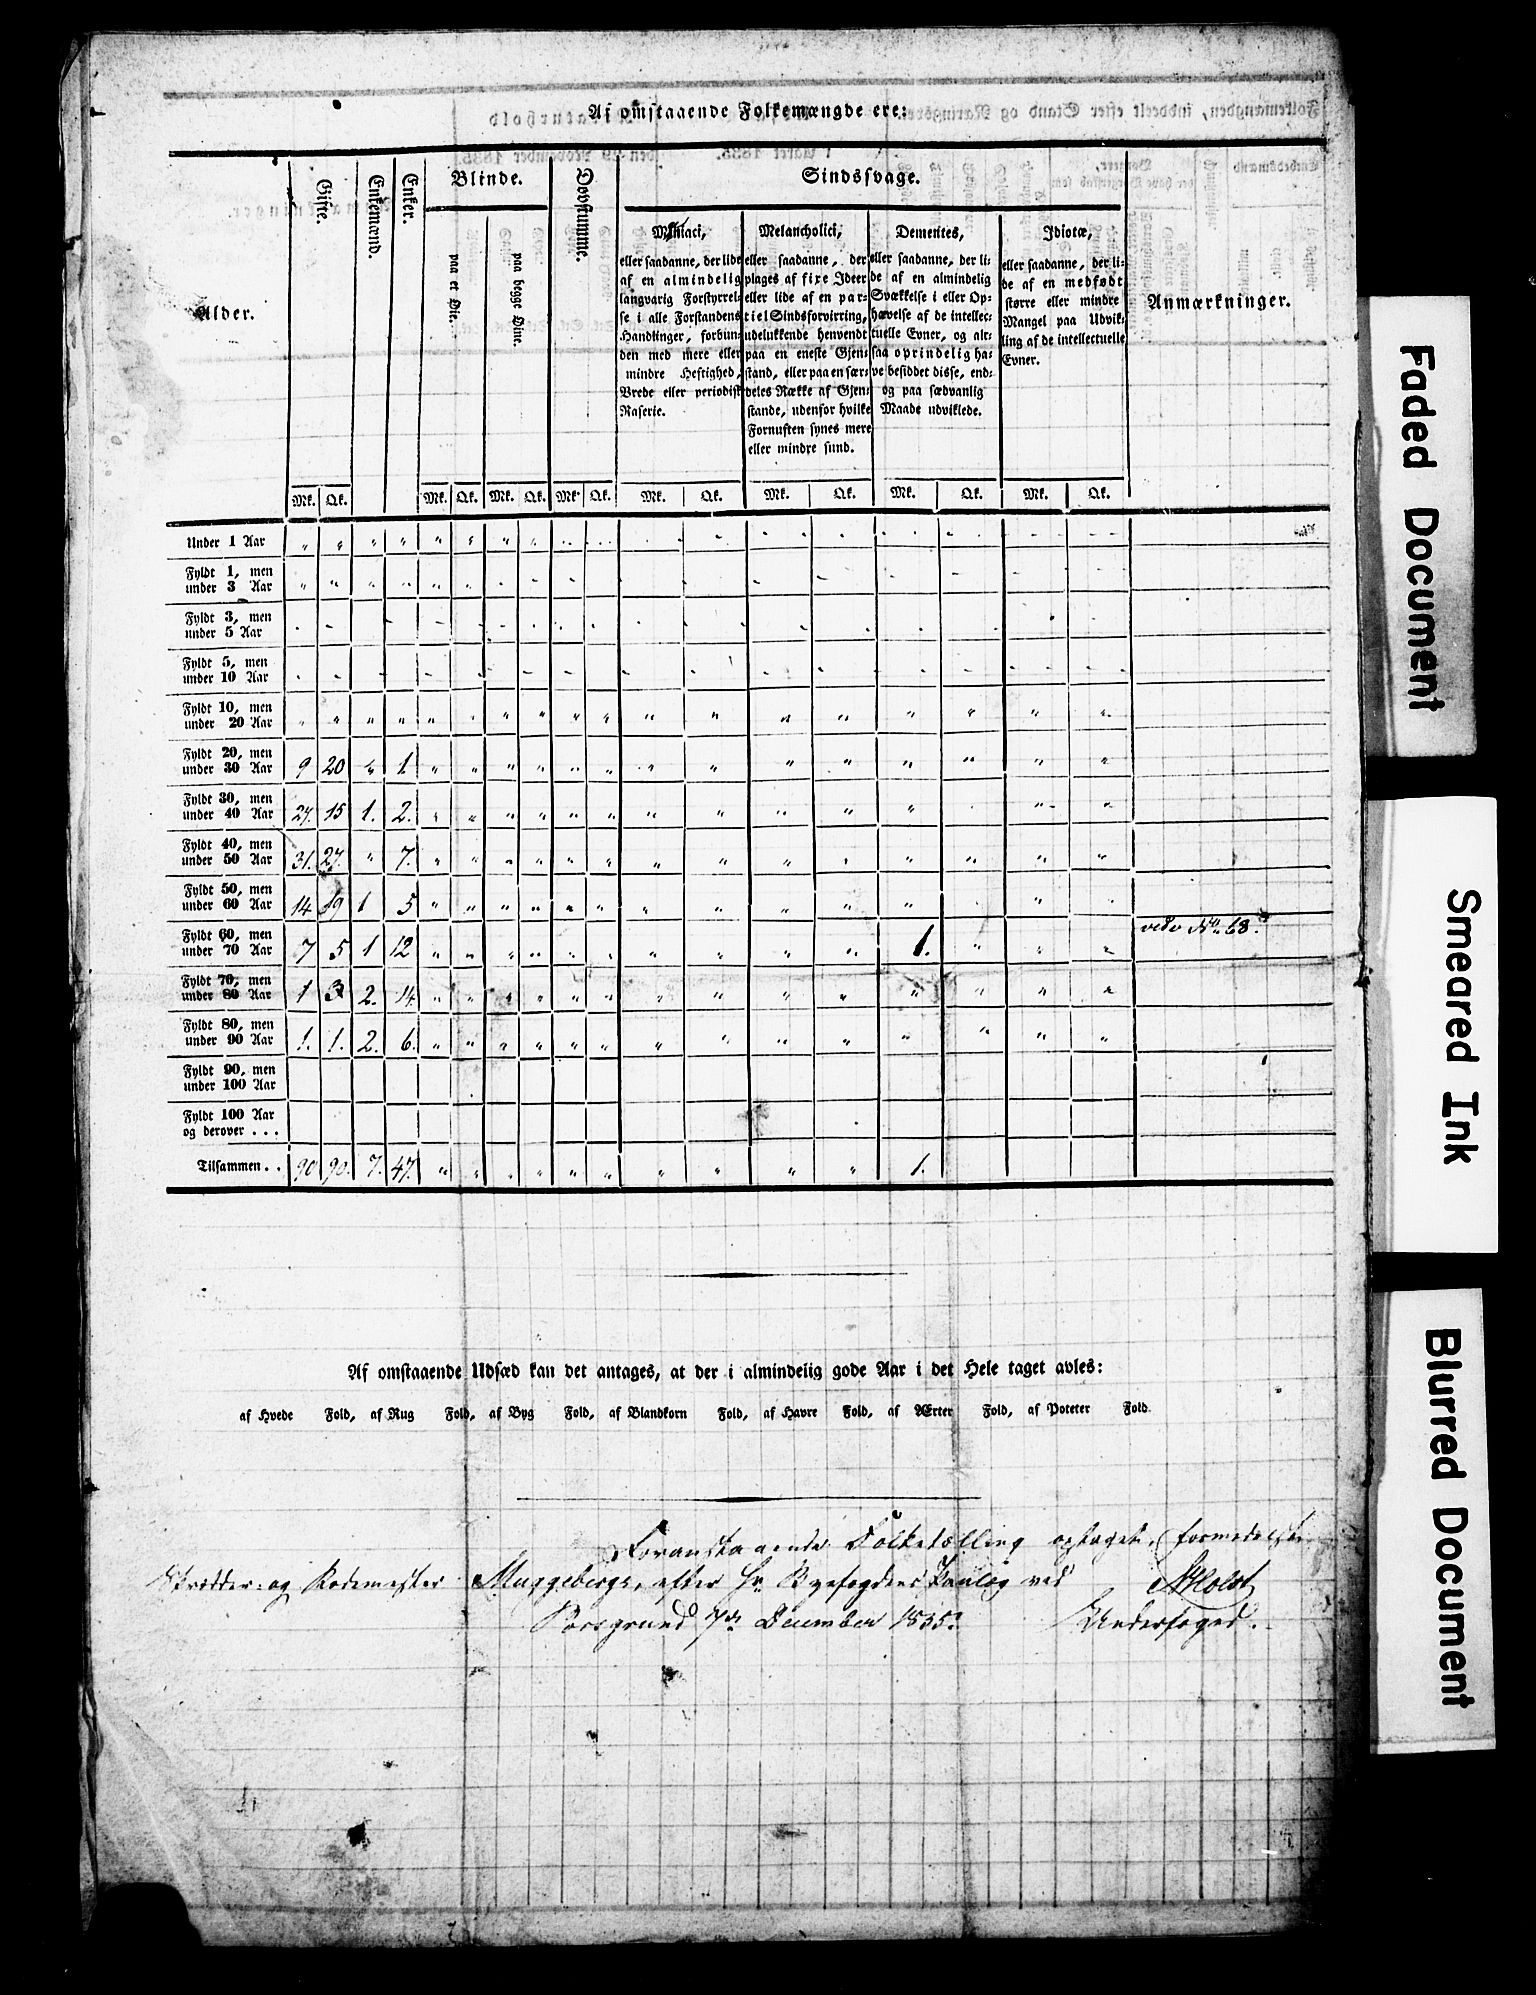 Af omstaaende Folkemængde ere:
Alder.
Gifte.
Enkemænd.
Enker.
Blinde.
paa et Øie.
paa begge Øine.
Døvstumme.
Sindssvage.
Maniaci,
eller saadanne, der lide
af en almindelig
langvarig Forstyrrel-
se i alle Forstandens
Handlinger, forbun-
den med mere eller
mindre Heftighed,
Vrede eller periodisk
Raserie.
Melancholici,
eller saadanne, der
plages af fixe Ideer
eller lide af en par-
tiel Sindsforvirring,
udelukkende henvendt
paa en eneste Gjen-
stand, eller paa en sær-
deles Række af Gjen-
stande, udenfor hvilke
Fornuften synes mere
eller mindre sund.
Dementes,
eller saadanne, der li-
de af en almindelig
Svækkelse i eller Op-
hævelse af de intellec-
tuelle Evner, og alt-
saa oprindelig ha-
ve besiddet disse, end-
og paa sædvanlig
Maade udviklede.
Idiotæ,
eller saadanne, der li-
de af en medfødt
større eller mindre
Mangel paa Udvik-
ling af de intellectuelle
Evner.
Anmærkninger.
Mk. Qk. Mk. Qk. Mk. Qk. Mk. Qk. Mk. Qk. Mk. Qk. Mk. Qk. Mk. Qk.
Under 1 Aar " " " " " " " "
Fyldt 1, men
under 3 Aar " " " " " "
Fyldt 3, men
under 5 Aar
Fyldt 5, men
under 10 Aar
Fyldt 10, men
under 20 Aar " " " " " " " " " " " " " " " " " "
Fyldt 20, men
under 30 Aar 9 20 " 1. " " " " " " " " " " " " " "
Fyldt 30, men
under 40 Aar 27. 15 1. 2. " " " " " " " " " " " " "
Fyldt 40, men
under 50 Aar 31. 27. " 7. " " " " " " " " " " " " " "
Fyldt 50, men
under 60 Aar 14 19 1 5 " " " " " " " " " " " "
Fyldt 60, men
under 70 Aar 7 5 1 12 " " " " " " " " " " 1. " " " No. 68.
Fyldt 70, men
under 80 Aar 1 3 2. 14 " " " " " " " " " " " " " "
Fyldt 80, men
under 90 Aar 1. 1. 2. 6. " " " " " " " " " " " " " "
Fyldt 90, men
under 100 Aar
Fyldt 100 Aar
og derover . . .
Tilsammen . . 90 90. 7. 47. " " " " " " " " " " 1.
Af omstaaende Udsæd kan det antages, at der i almindelig gode Aar i det Hele taget avles:
af Hvede Fold, af Rug Fold, af Byg Fold, af Blandkorn Fold, af Havre Fold, af Ærter Fold, af Poteter Fold.
Foranstaaende Folketælling optaget, formedelst
Skrædder- og Rodemester Muggebergs, efter Hr. Byefogdens Paalæg ved Holst
Porsgrund 7de December 1835. Underfoged.
Faded Document
Smeared Ink
Blurred Document